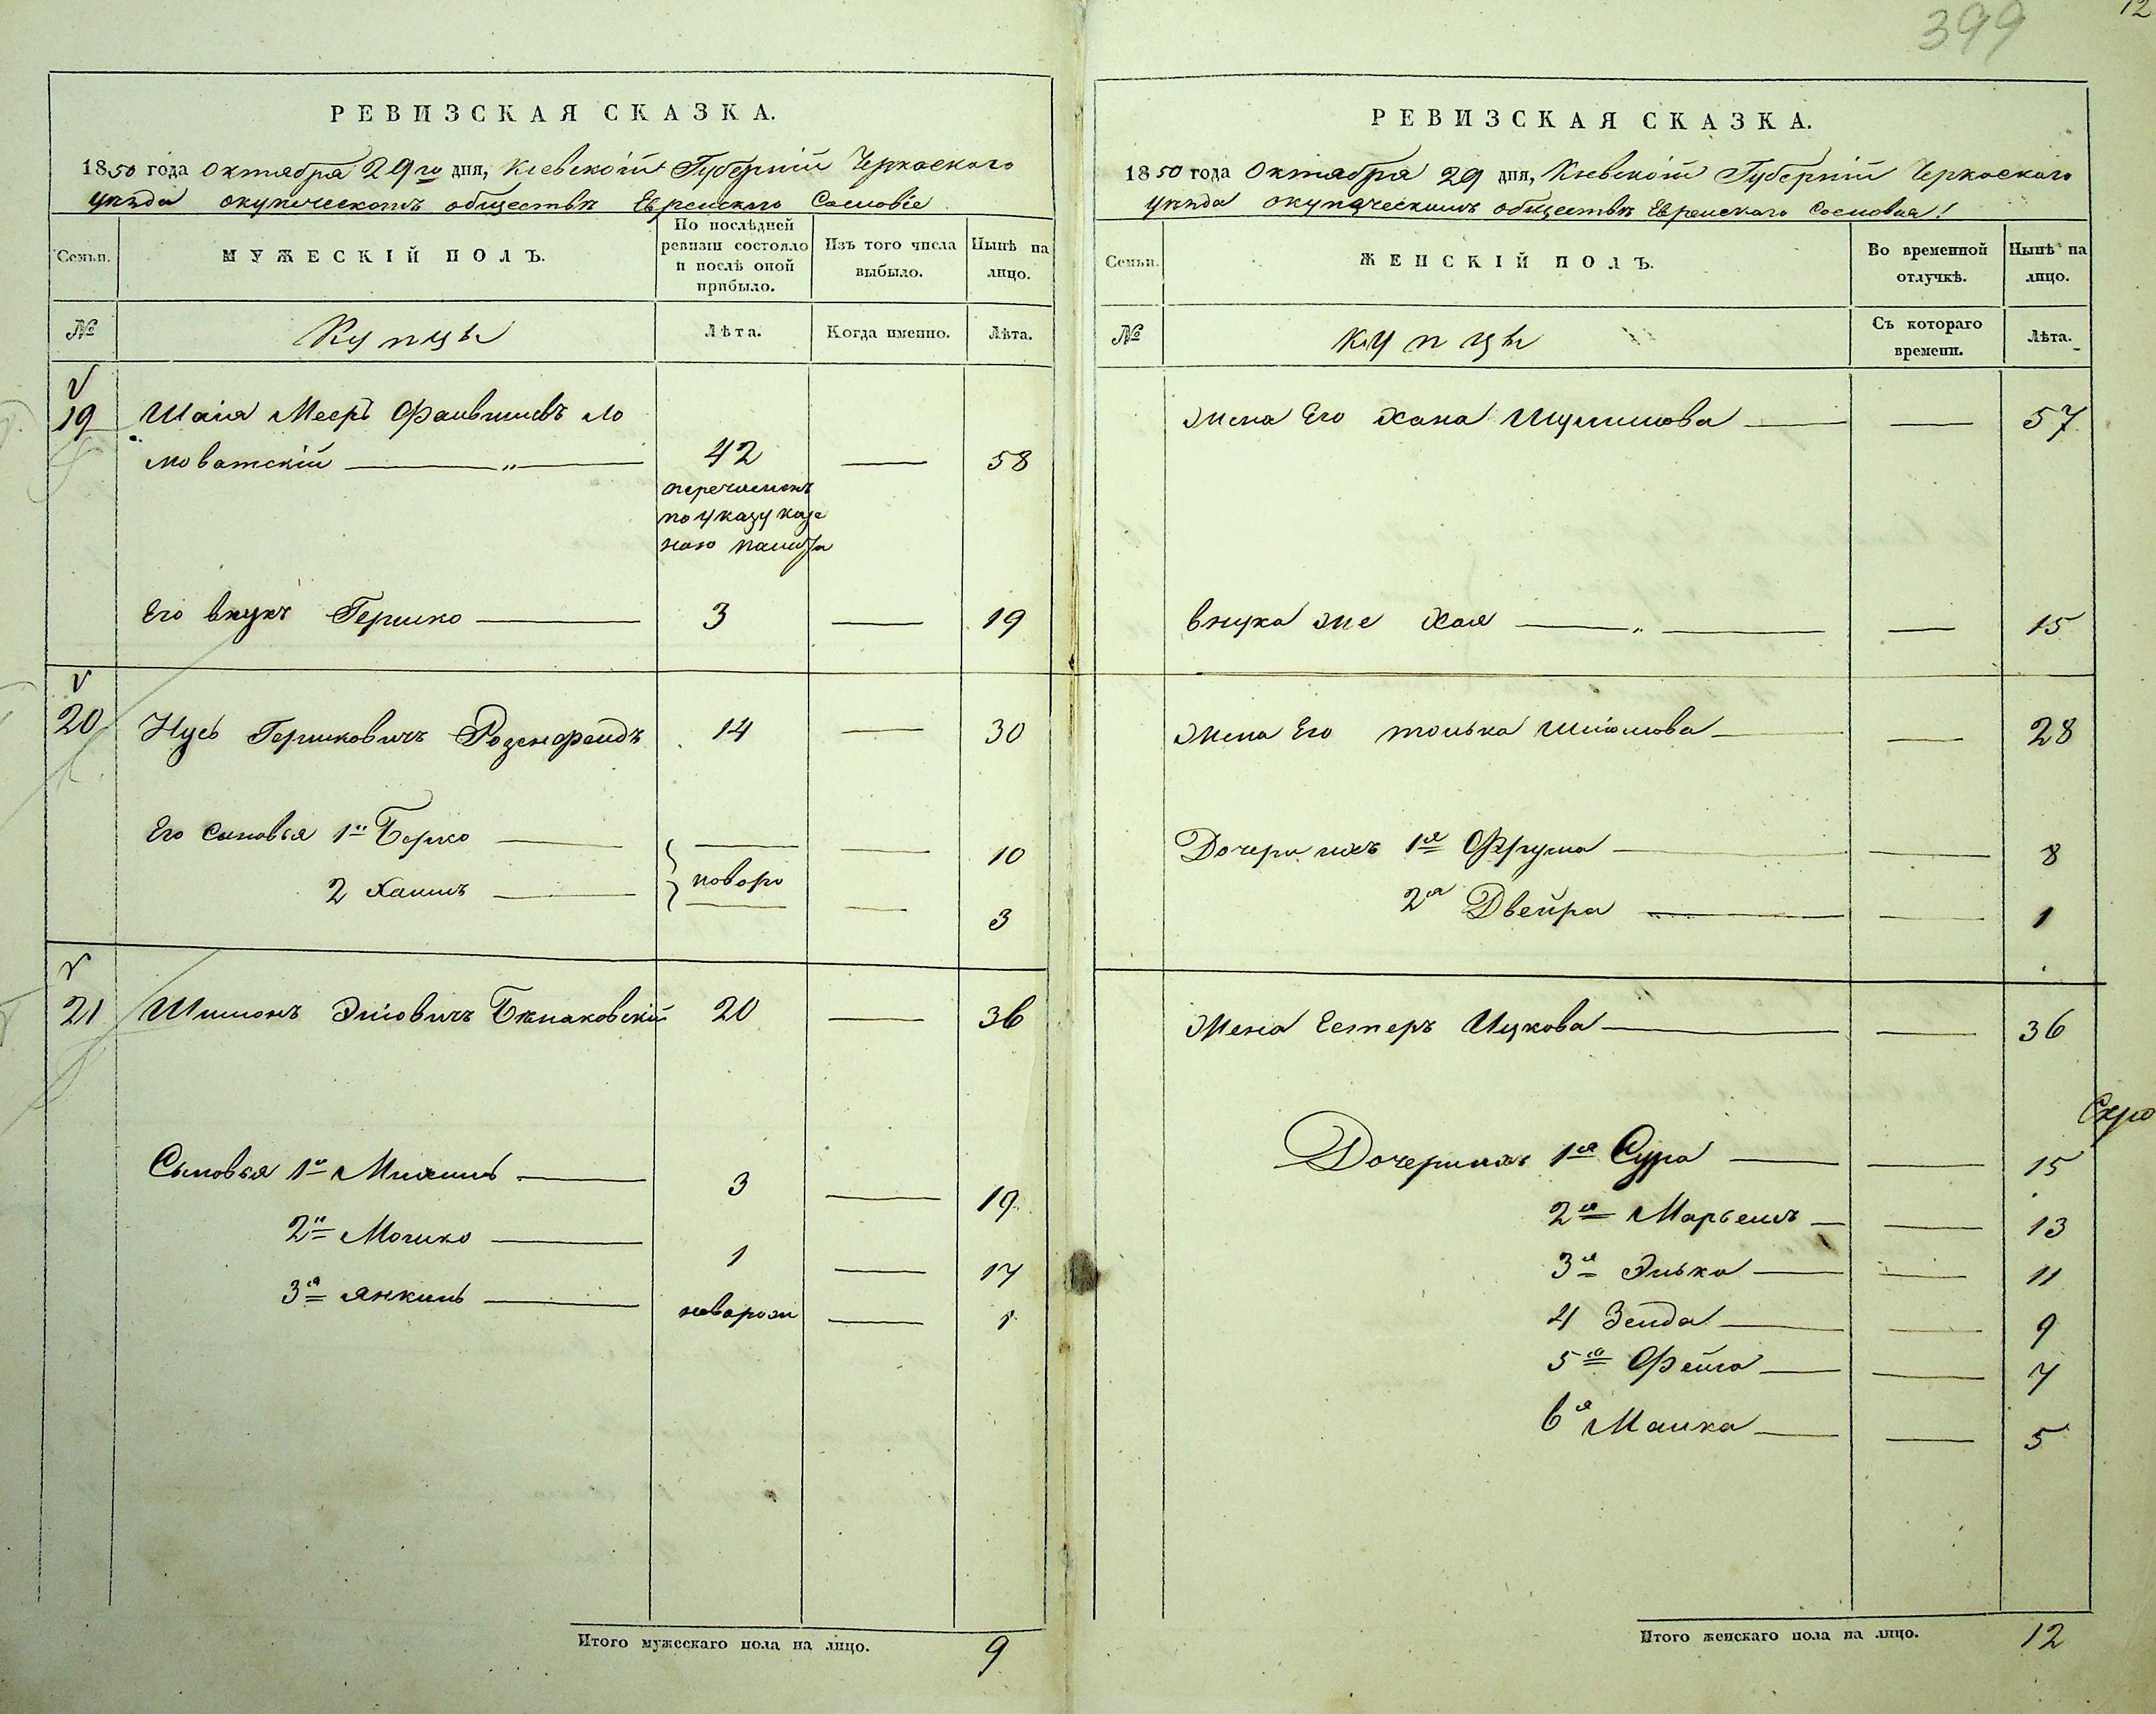 399
12
РЕВИЗСКАЯ СКАЗКА.
1850 года Октября 29го дня, Кіевской Губерніи Черкаского
уѣзда окупеческомъ обществѣ Еврейского Сословіе
Семьи.
МУЖЕСКІЙ ПОЛЪ.
По послѣдней ревизіи состояло и послѣ оной прибыло.
Изъ того числа выбыло.
Нынѣ на лицо.
№
Купцы
Лѣта.
Когда именно.
Лѣта.
19 Шаія Мееръ Фаивишевъ Ло
моватскій 42 58
перечислен
по указу казе
ною
Его внукъ Гершко 3 19
20 Нусь Гершковичъ Розенфелдъ 14 30
Его сыновья 1й Берко 10
новоро
2 Хаимъ 3
21 Шимонъ Эліовичъ 20 36
Сыновья 1й Михель 3 19
2й Мошко 1 17
3й Янкель новорож 1
Итого мужескаго пола на лицо. 9
РЕВИЗСКАЯ СКАЗКА.
1850 года Октября 29 дня, Кіевской Губерніи Черкаского
уѣзда окупаческимъ обществѣ Еврейскаго Сословия!
Семьи.
ЖЕНСКІЙ ПОЛЪ.
Во временной отлучкѣ.
Нынѣ на лицо.
№
Купцы
Съ котораго времени.
Лѣта.
Жена Его Хана Шулимова 57
внука же Хая 15
Жена Его Шліомова 28
Дочери ихъ 1я Фрума 8
2я Двейра 1
Жена Естеръ Ицкова 36
Дочери ихъ 1я Сура 15
2я Марьемъ 13
3я Элька 11
4 Зелда 9
5я Фейга 7
6я Малка 5
Итого женскаго пола на лицо. 12